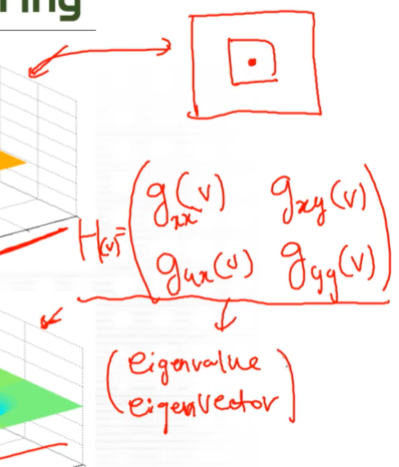 ring
H(v)= ( g_xx(v) g_xy(v)
g_yx(v) g_yy(v) )
( eigenvalue
eigenvector )